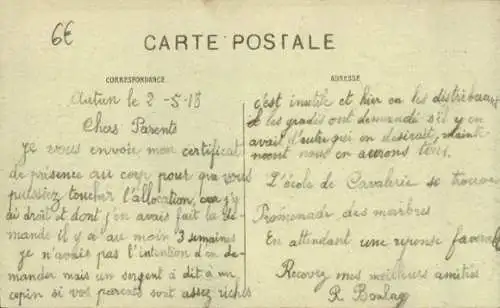 6€
CARTE POSTALE
CORRESPONDANCE
Autun le 2-5-18
Chers Parents
Je vous envoie mon certificat
de présence au corp pour que vous
puissiez toucher l'allocation, car j'y
ai droit et dont j'en avais fait la de-
mande il y a au moin 3 semaines
je n'avais pas l'intention d'en de-
mander mais un sergent à dit à un
copin si vos parents sont assez riches
ADRESSE
c'est inutile et hier on les distribeau
et les gradés ont demandé s'il y en
avait d'autre qui en désirait, maint-
noont nous en aurons tous.
L'école de Cavalerie se trouve
Promenade des marbres
En attendant une reponse favorable
Recevez mes meilleurs amitiés
R. Boulay